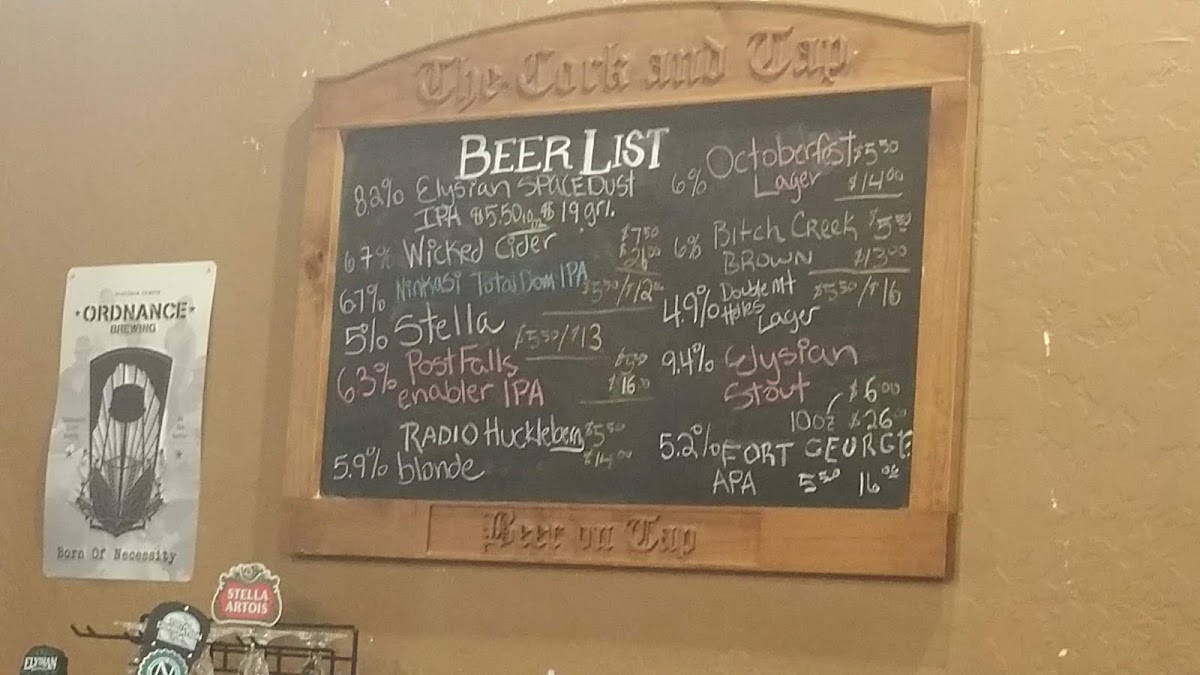 The Cork and Tap
BEER LIST
8.2% Elysian SPACEDUST
IPA $5.50 10oz $19 grl.
6.7% Wicked Cider $7.50
$26.00
6.7% Ninkasi Total Dom IPA $5.50/$12.00
5% Stella $5.50/$13
6.3% Post Falls $5.50
enabler IPA $16.00
RADIO Huckleberry $5.50
5.9% blonde $14.00
Octoberfest $5.50
6% Lager $14.00
6% Bitch Creek $5.50
BROWN $13.00
4.9% Double Mt $5.50/$16
Holes
Lager
9.4% Elysian
Stout $6.00
10oz $26.00
5.2% FORT GEORGE
APA 5.50 16.00
Beer on Tap
ORDNANCE
BREWING
Born Of Necessity
STELLA
ARTOIS
ELYSIAN
N